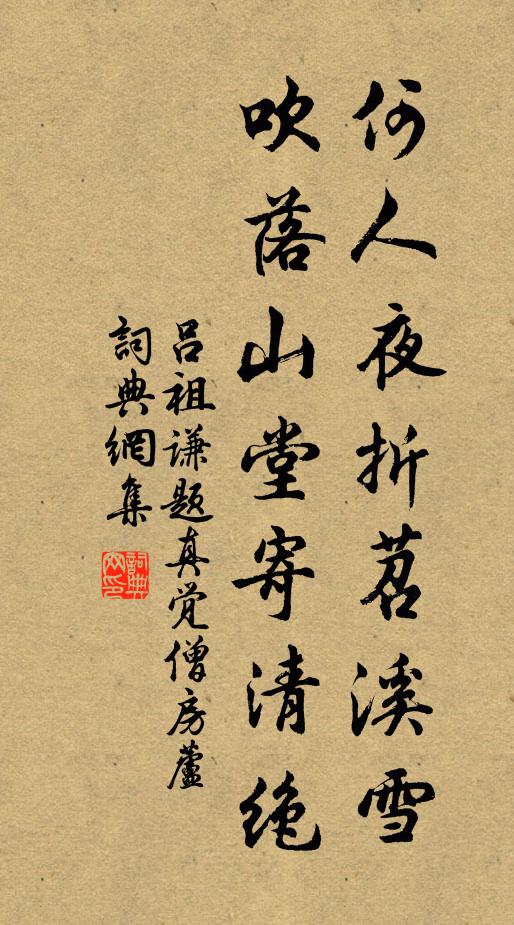 何人夜折苕溪雪
吹落山堂寄清絶
吕祖谦题真觉僧房蘆
詞典網集
詞典網印